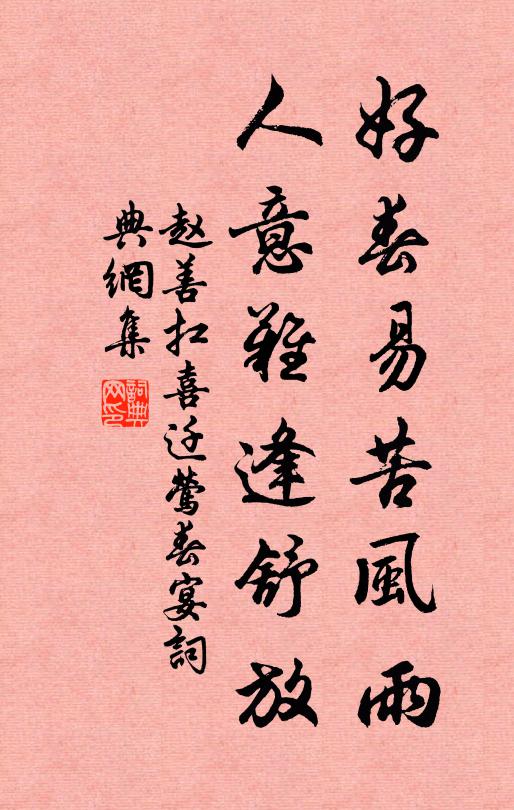 好春易苦風雨
人意難逢舒放
赵善扛喜迁莺春宴詞
典網集
詞典网印